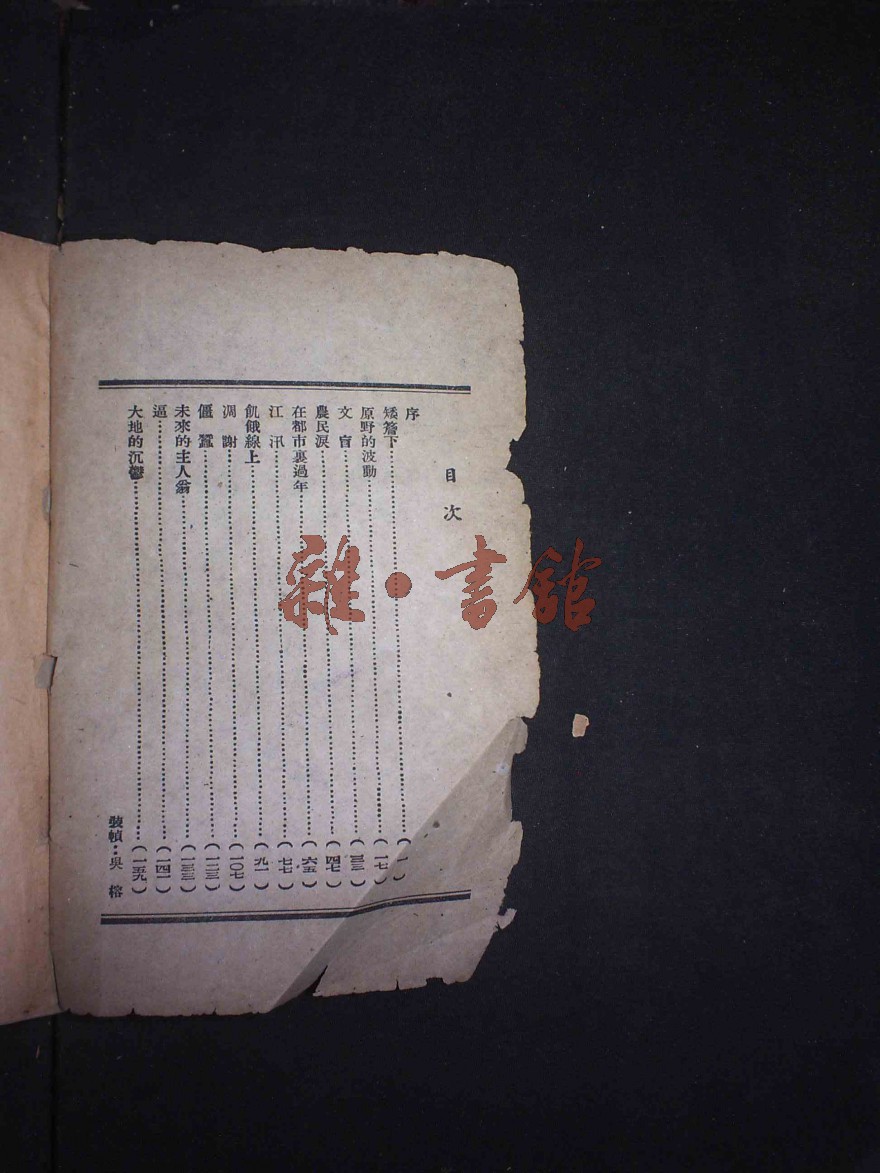 目次
序
矮簷下……(一)
原野的波動……(一七)
文盲……(三三)
農民淚……(四七)
在都市裏過年……(六五)
江汛……(七七)
飢餓線上……(九一)
凋謝……(一〇七)
僵蠶……(一二三)
未來的主人翁……(一三三)
逼……(一四一)
大地的沉鬱……(一五九)
裝幀·吳榕
雜·書館